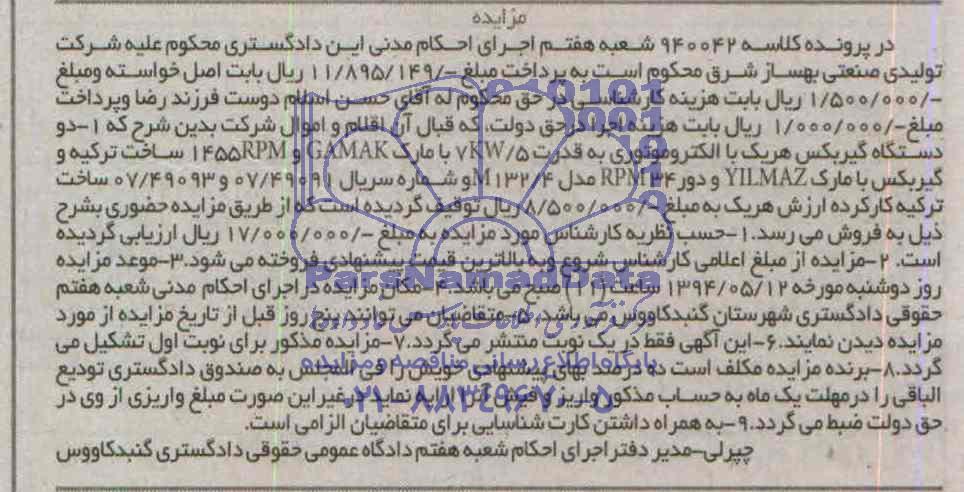 مزایده
در پرونده کلاسه ۹۴۰۰۴۲ شعبه هفتم اجرای احکام مدنی این دادگستری محکوم علیه شرکت
تولیدی صنعتی بهساز شرق محکوم است به پرداخت مبلغ -/۱۱/۸۹۵/۱۴۹ ریال بابت اصل خواسته ومبلغ
-/۱/۵۰۰/۰۰۰ ریال بابت هزینه کارشناسی در حق محکوم له آقای حسن اسلام دوست فرزند رضا وپرداخت
مبلغ-/۱/۰۰۰/۰۰۰ ریال بابت هزینه اجرا درحق دولت، که قبال آن اقلام و اموال شرکت بدین شرح که ۱-دو
دستگاه گیربکس هریک با الکتروموتوری به قدرت ۷KW/۵ با مارک GAMAK و ۱۴۵۵RPM ساخت ترکیه و
گیربکس با مارک YILMAZ و دور ۳۴RPM مدل M۱۳۲/۴ و شماره سریال ۰۷/۴۹۰۹۱ و ۰۷/۴۹۰۹۳ ساخت
ترکیه کارکرده ارزش هریک به مبلغ -/۸/۵۰۰/۰۰۰ ریال توقیف گردیده است که از طریق مزایده حضوری بشرح
ذیل به فروش می رسد.۱-حسب نظریه کارشناس مورد مزایده به مبلغ -/۱۷/۰۰۰/۰۰۰ ریال ارزیابی گردیده
است. ۲-مزایده از مبلغ اعلامی کارشناس شروع و به بالاترین قیمت پیشنهادی فروخته می شود.۳-موعد مزایده
روز دوشنبه مورخه ۱۳۹۴/۰۵/۱۲ ساعت ۱۱ صبح می باشد.۴-مکان مزایده در اجرای احکام مدنی شعبه هفتم
حقوقی دادگستری شهرستان گنبدکاووس می باشد.۵-متقاضیان می توانند پنج روز قبل از تاریخ مزایده از مورد
مزایده دیدن نمایند.۶-این آگهی فقط در یک نوبت منتشر می گردد.۷-مزایده مذکور برای نوبت اول تشکیل می
گردد.۸-برنده مزایده مکلف است ده درصد بهای پیشنهادی خویش را فی المجلس به صندوق دادگستری تودیع
الباقی را درمهلت یک ماه به حساب مذکور واریز و فیش آنرا ارایه نماید درغیراین صورت مبلغ واریزی از وی در
حق دولت ضبط می گردد.۹-به همراه داشتن کارت شناسایی برای متقاضیان الزامی است.
چپرلی-مدیر دفتراجرای احکام شعبه هفتم دادگاه عمومی حقوقی دادگستری گنبدکاووس
ParsNamadData
پایگاه اطلاع رسانی مناقصه و مزایده
۰۲۱-۸۸۳۴۹۶۷۰-۵